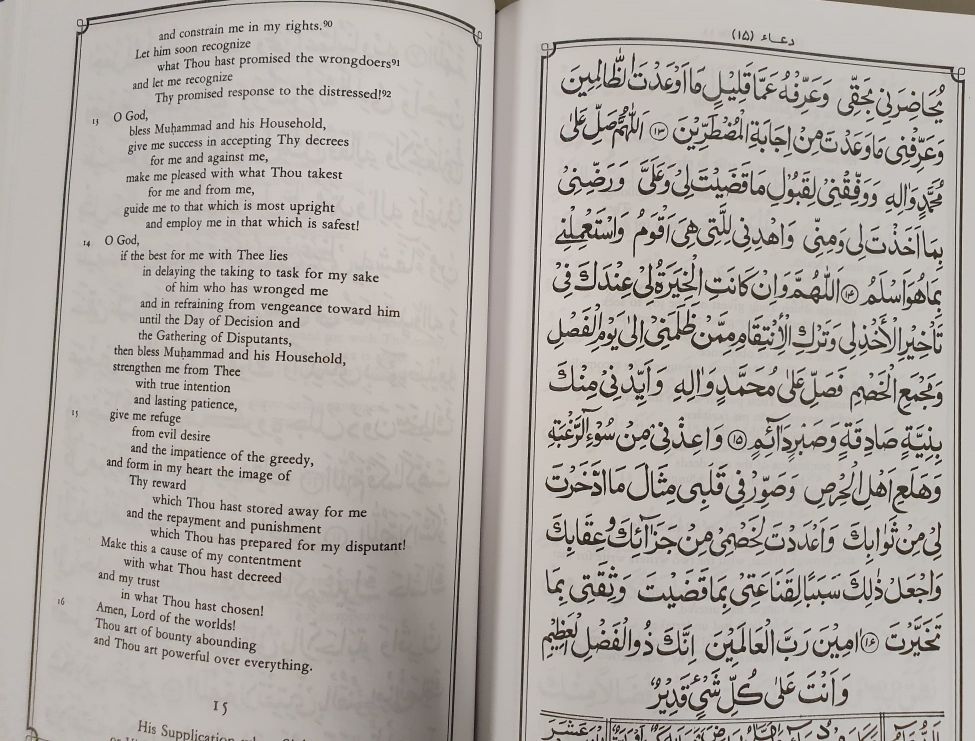 and constrain me in my rights.90
Let him soon recognize
what Thou hast promised the wrongdoers91
and let me recognize
Thy promised response to the distressed!92
13 O God,
bless Muḥammad and his Household,
give me success in accepting Thy decrees
for me and against me,
make me pleased with what Thou takest
for me and from me,
guide me to that which is most upright
and employ me in that which is safest!
14 O God,
if the best for me with Thee lies
in delaying the taking to task for my sake
of him who has wronged me
and in refraining from vengeance toward him
until the Day of Decision and
the Gathering of Disputants,
then bless Muḥammad and his Household,
strengthen me from Thee
with true intention
and lasting patience,
15 give me refuge
from evil desire
and the impatience of the greedy,
and form in my heart the image of
Thy reward
which Thou hast stored away for me
and the repayment and punishment
which Thou has prepared for my disputant!
Make this a cause of my contentment
with what Thou hast decreed
and my trust
in what Thou hast chosen!
16 Amen, Lord of the worlds!
Thou art of bounty abounding
and Thou art powerful over everything.
15
His Supplication
دعاء (۱۵)
يُحَاضِرُنِي بِحَقِّي وَعَرِّفْهُ عَمَّا قَلِيْلٍ مَا اَوْعَدْتَ الظَّالِمِيْنَ
وَعَرِّفْنِي مَا وَعَدْتَ مِنْ اِجَابَةِ الْمُضْطَرِّيْنَ ۱۳ اَللّٰهُمَّ صَلِّ عَلٰى
مُحَمَّدٍ وَاٰلِهِ وَوَفِّقْنِيْ لِقَبُوْلِ مَا قَضَيْتَ لِيْ وَعَلَيَّ وَرَضِّنِيْ
بِمَا اَخَذْتَ لِي وَمِنِّي وَاهْدِنِي لِلَّتِي هِيَ اَقْوَمُ وَاسْتَعْمِلْنِي
بِمَا هُوَ اَسْلَمُ ۱۴ اَللّٰهُمَّ وَاِنْ كَانَتِ الْخِيَرَةُ لِيْ عِنْدَكَ فِيْ
تَاْخِيْرِ الْاَخْذِ لِي وَتَرْكِ الْاِنْتِقَامِ مِمَّنْ ظَلَمَنِيْ اِلٰى يَوْمِ الْفَصْلِ
وَمَجْمَعِ الْخَصْمِ فَصَلِّ عَلٰى مُحَمَّدٍ وَاٰلِهِ وَاَيِّدْنِي مِنْكَ
بِنِيَّةٍ صَادِقَةٍ وَصَبْرٍ دَائِمٍ ۱۵ وَاَعِذْنِي مِنْ سُوْءِ الرَّغْبَةِ
وَهَلَعِ اَهْلِ الْحِرْصِ وَصَوِّرْ فِي قَلْبِي مِثَالَ مَا ادَّخَرْتَ
لِيْ مِنْ ثَوَابِكَ وَاَعْدَدْتَ لِخَصْمِيْ مِنْ جَزَائِكَ وَعِقَابِكَ
وَاجْعَلْ ذٰلِكَ سَبَبًا لِقَنَاعَتِيْ بِمَا قَضَيْتَ وَثِقَتِيْ بِمَا
تَخَيَّرْتَ ۱۶ اٰمِيْنَ رَبَّ الْعَالَمِيْنَ اِنَّكَ ذُو الْفَضْلِ الْعَظِيْمِ
وَاَنْتَ عَلٰى كُلِّ شَيْءٍ قَدِيْرٌ